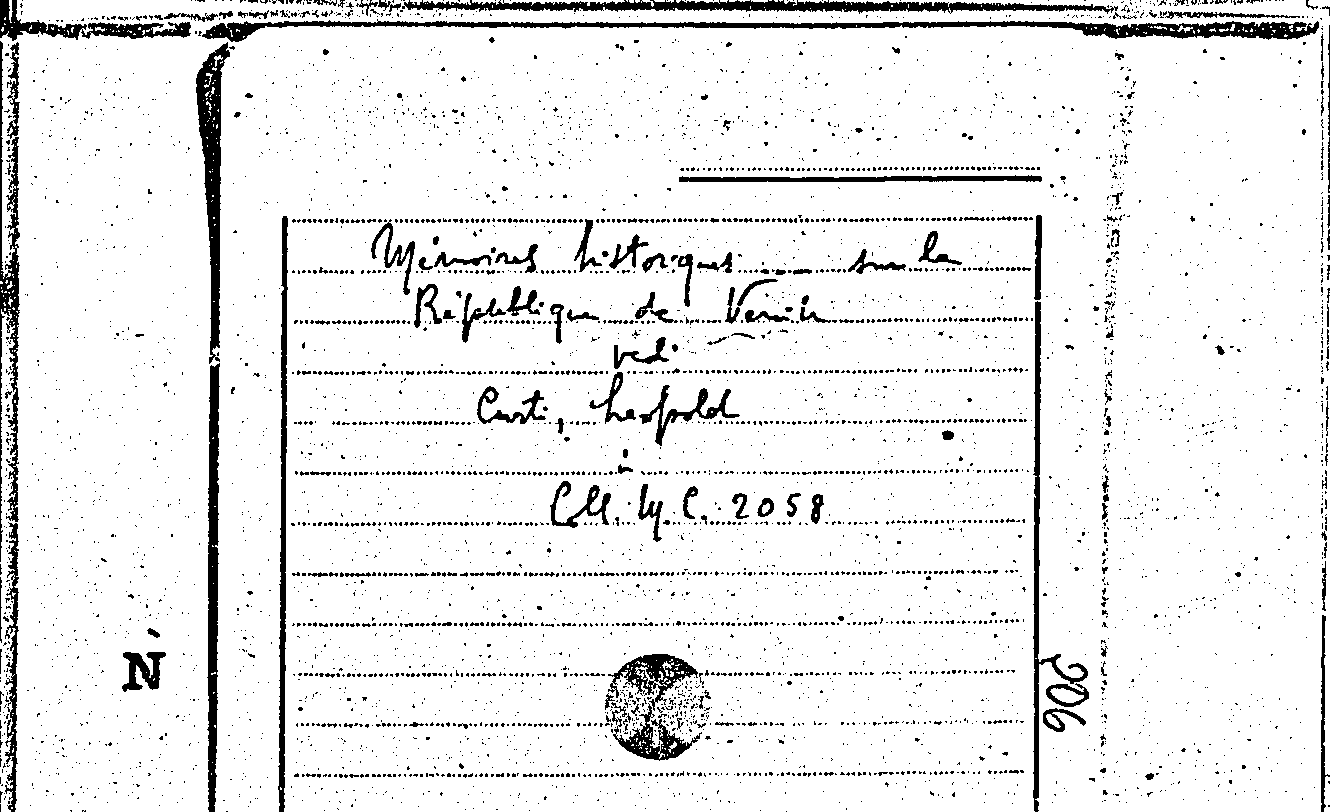 Mémoires historiques ... sur la
République de Venise
vedi
Curti, Leopold
in
Coll. 2058
N
206